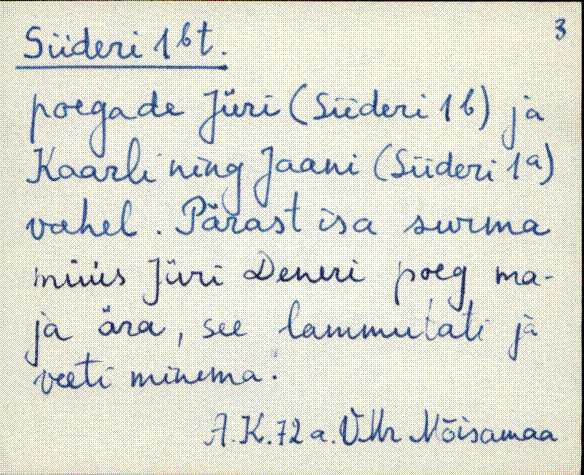 3
Siideri 1bt.
poegade Jüri (Siideri 1b) ja
Kaarli ning Jaani (Siideri 1a)
vahel. Pärast isa surma
müüs Jüri Deneri poeg ma-
ja ära, see lammutati ja
veeti minema.
A.K. 72 a. VMr Mõisamaa